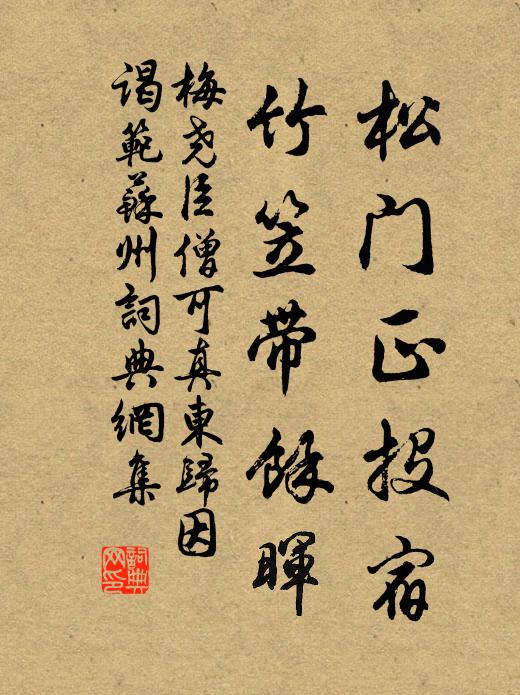 松门正投宿
竹笠带餘暉
梅尧臣僧可真東歸因
謁範蘇州詞典網集
詞典网印